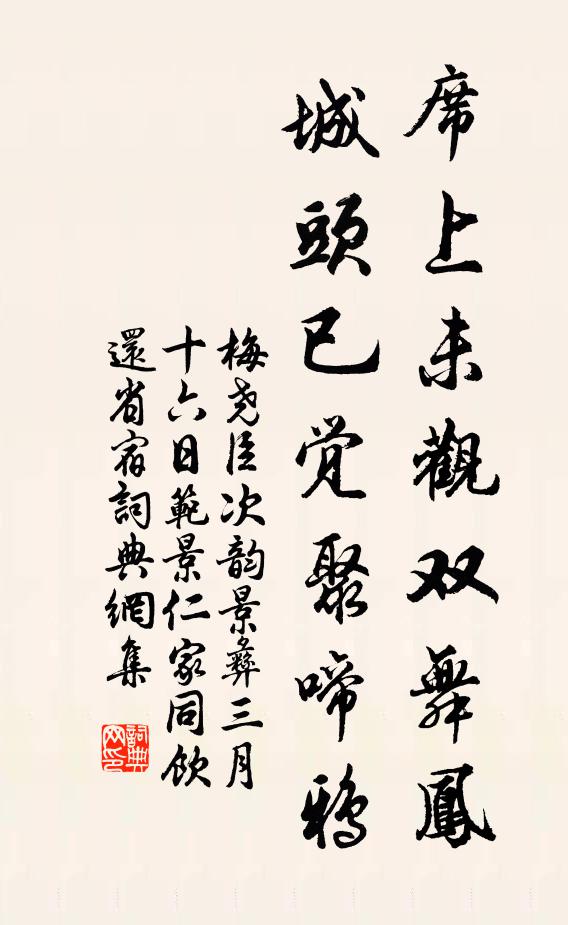 席上未觀双舞鳳
城頭已觉聚啼鴉
梅尧臣次韵景彝三月
十六日範景仁家同飲
還省宿詞典網集
詞典網印